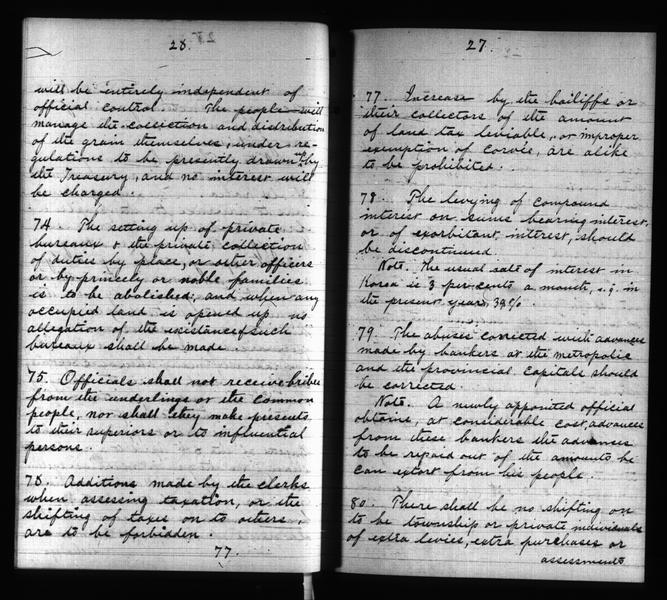 26.
will be entirely independent of
official control. The people will
manage the collection and distribution
of the grain themselves, under re-
gulations to be presently drawn up by
the Treasury, and no interest will
be charged.
74. The setting up of private
bureaux & the private collection
of duties by place, or other officers
or by princely or noble families
is to be abolished; and when any
occupied land is opened up no
allegation of the existence of such
bureaux shall be made.
75. Officials shall not receive bribes
from the underlings or the common
people, nor shall they make presents
to their superiors or to influential
persons.
76. Additions made by the clerks
when assessing taxation, or the
shifting of taxes on to others,
are to be forbidden.
77.
27.
77. Increase by the bailiffs or
their collectors of the amount
of land tax leviable, or improper
exemption of corvée, are alike
to be prohibited.
78. The levying of compound
interest on sums bearing interest,
or of exorbitant interest, should
be discontinued.
Note. The usual rate of interest in
Korea is 3 per cent a month, e.g. in
the present year, 39%
79. The abuses connected with advances
made by bankers at the metropolis
and the provincial capitals should
be corrected.
Note. A newly appointed official
obtains, at considerable cost, advances
from these bankers the advances
to be repaid out of the amounts he
can extort from his people.
80. There shall be no shifting on
to the township or private individuals
of extra levies, extra purchases or
assessments